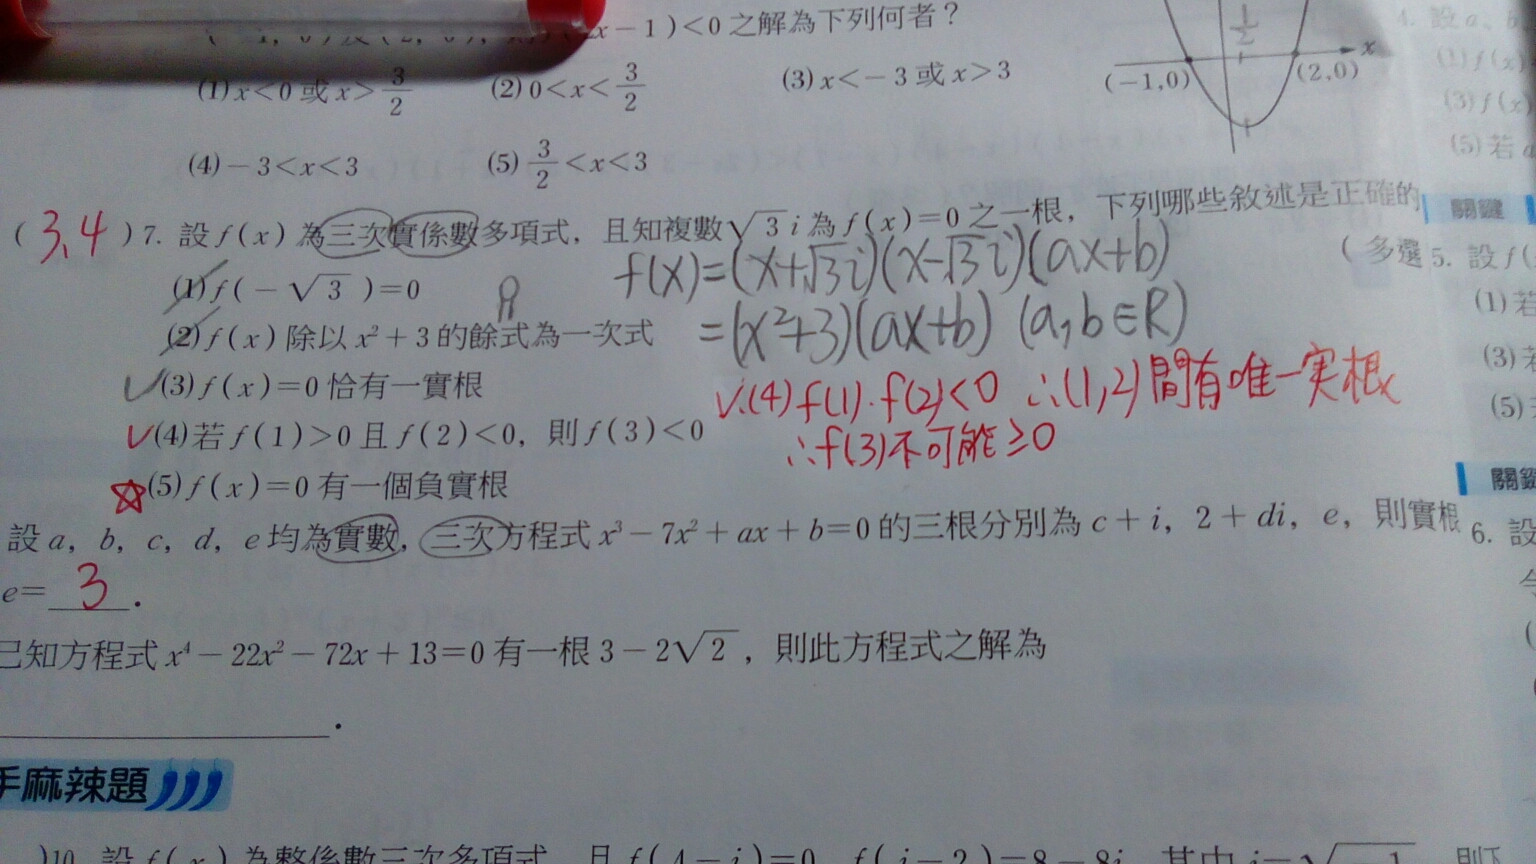 x－1)＜0 之解為下列何者？
(1) x＜0 或 x＞3/2 (2) 0＜x＜3/2 (3) x＜－3 或 x＞3
(4)－3＜x＜3 (5) 3/2＜x＜3
1/2 x
(－1,0) (2,0)
( 3、4 ) 7. 設 f(x) 為三次實係數多項式，且知複數 √3 i 為 f(x)＝0 之一根，下列哪些敘述是正確的
( 多選
f(x)=(x+√3i)(x-√3i)(ax+b)
(1) f(－√3)＝0
=(x²+3)(ax+b) (a,b∈R)
(2) f(x) 除以 x²＋3 的餘式為一次式
(3) f(x)＝0 恰有一實根
∵(4) f(1)·f(2)<0 ∴(1,2)間有唯一实根
(4) 若 f(1)＞0 且 f(2)＜0，則 f(3)＜0
∴f(3)不可能≥0
(5) f(x)＝0 有一個負實根
設 a，b，c，d，e 均為實數，三次方程式 x³－7x²＋ax＋b＝0 的三根分別為 c＋i，2＋di，e，則實根
e＝ 3 .
已知方程式 x⁴－22x²－72x＋13＝0 有一根 3－2√2，則此方程式之解為
.
手麻辣題
)10. 設 f(x) 為整係數三次多項式，且 f(4－i)＝0，f(i－2)＝8－8i，其中 i＝√－1，則
4. 設 a、b
(1) f(x)
(3) f(x)
(5) 若 a
關鍵
5. 設 f(
(1) 若
(3) 若
(5)
關鍵
6. 設
令